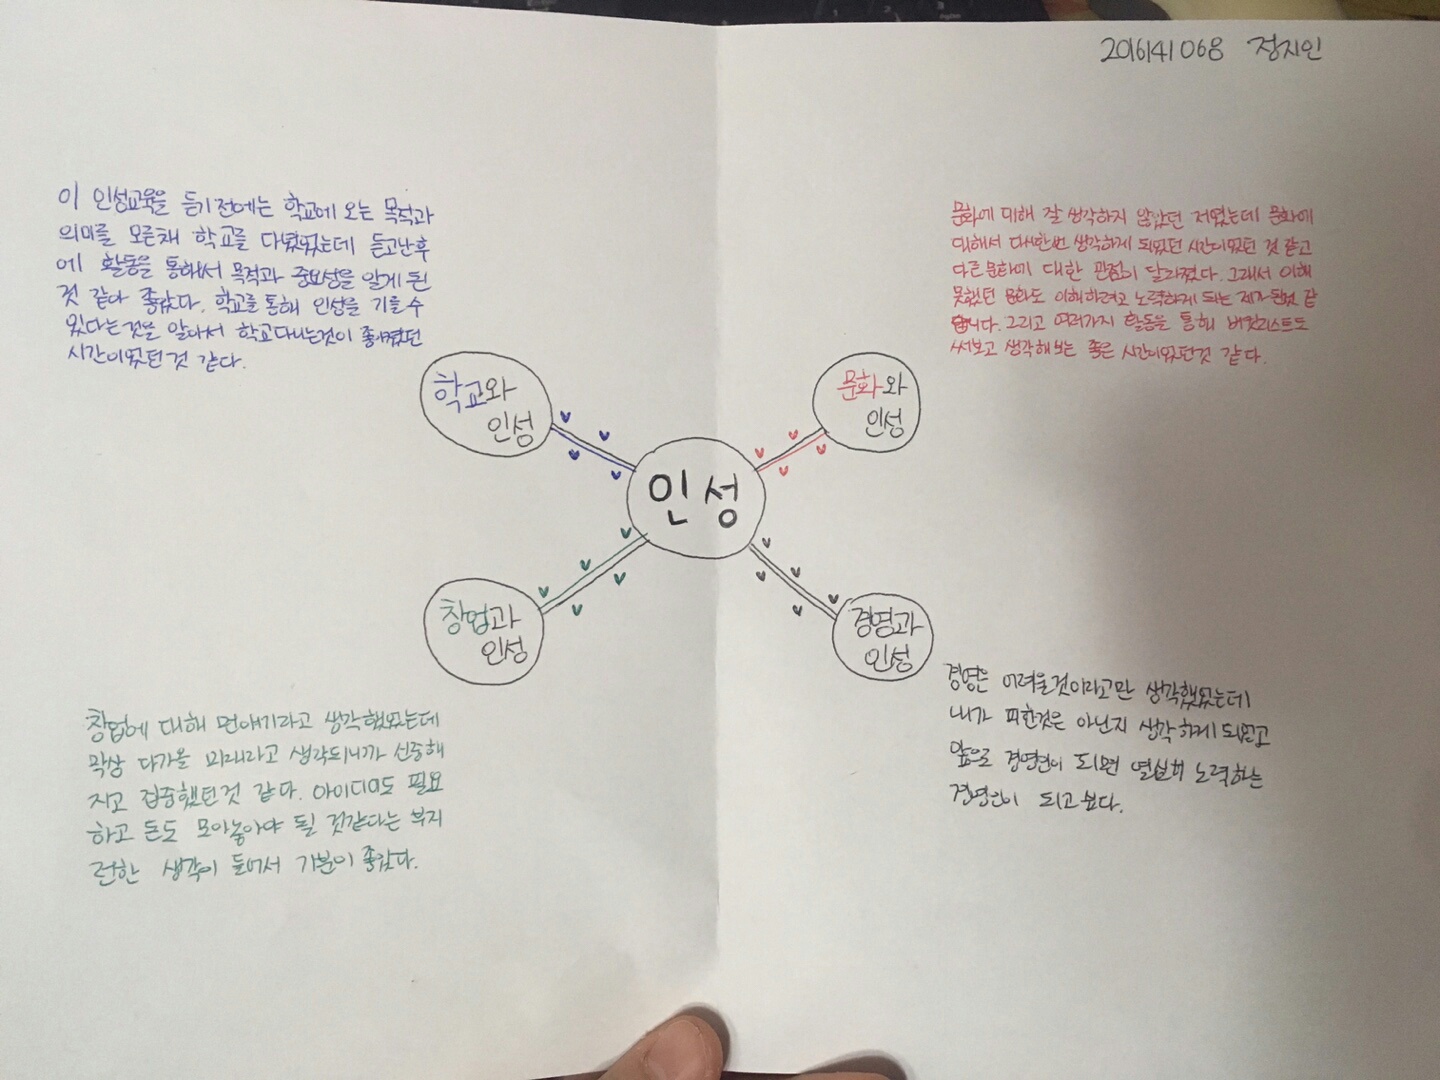 201641068 정지인
이 인성교육을 듣기 전에는 학교에 오는 목적과
의미를 모른채 학교를 다녔었는데 듣고난후
에 활동을 통해서 목적과 중요성을 알게 된
것 같아 좋았다. 학교를 통해 인성을 기를 수
있다는것을 알아서 학교다니는것이 좋아졌던
시간이었던 것 같다.
문화에 대해 잘 생각하지 않았던 저였는데 문화에
대해서 다시한번 생각하게 되었던 시간이었던 것 같고
다른 문화에 대한 관점이 달라졌다. 그래서 이해
못했던 문화도 이해하려고 노력하게 되는 제가 된것 같
습니다. 그리고 여러가지 활동을 통해 버킷리스트도
써보고 생각해보는 좋은 시간이었던것 같다.
학교와
인성
문화와
인성
인성
창업과
인성
경영과
인성
창업에 대해 먼얘기라고 생각했었는데
막상 다가올 미래라고 생각되니까 신중해
지고 집중했던것 같다. 아이디어도 필요
하고 돈도 모아놓아야 될 것같다는 부지
런한 생각이 들어서 기분이 좋았다.
경영은 어려울것이라고만 생각했었는데
내가 피한것은 아닌지 생각하게 되었고
앞으로 경영인이 되면 열심히 노력하는
경영인이 되고 싶다.